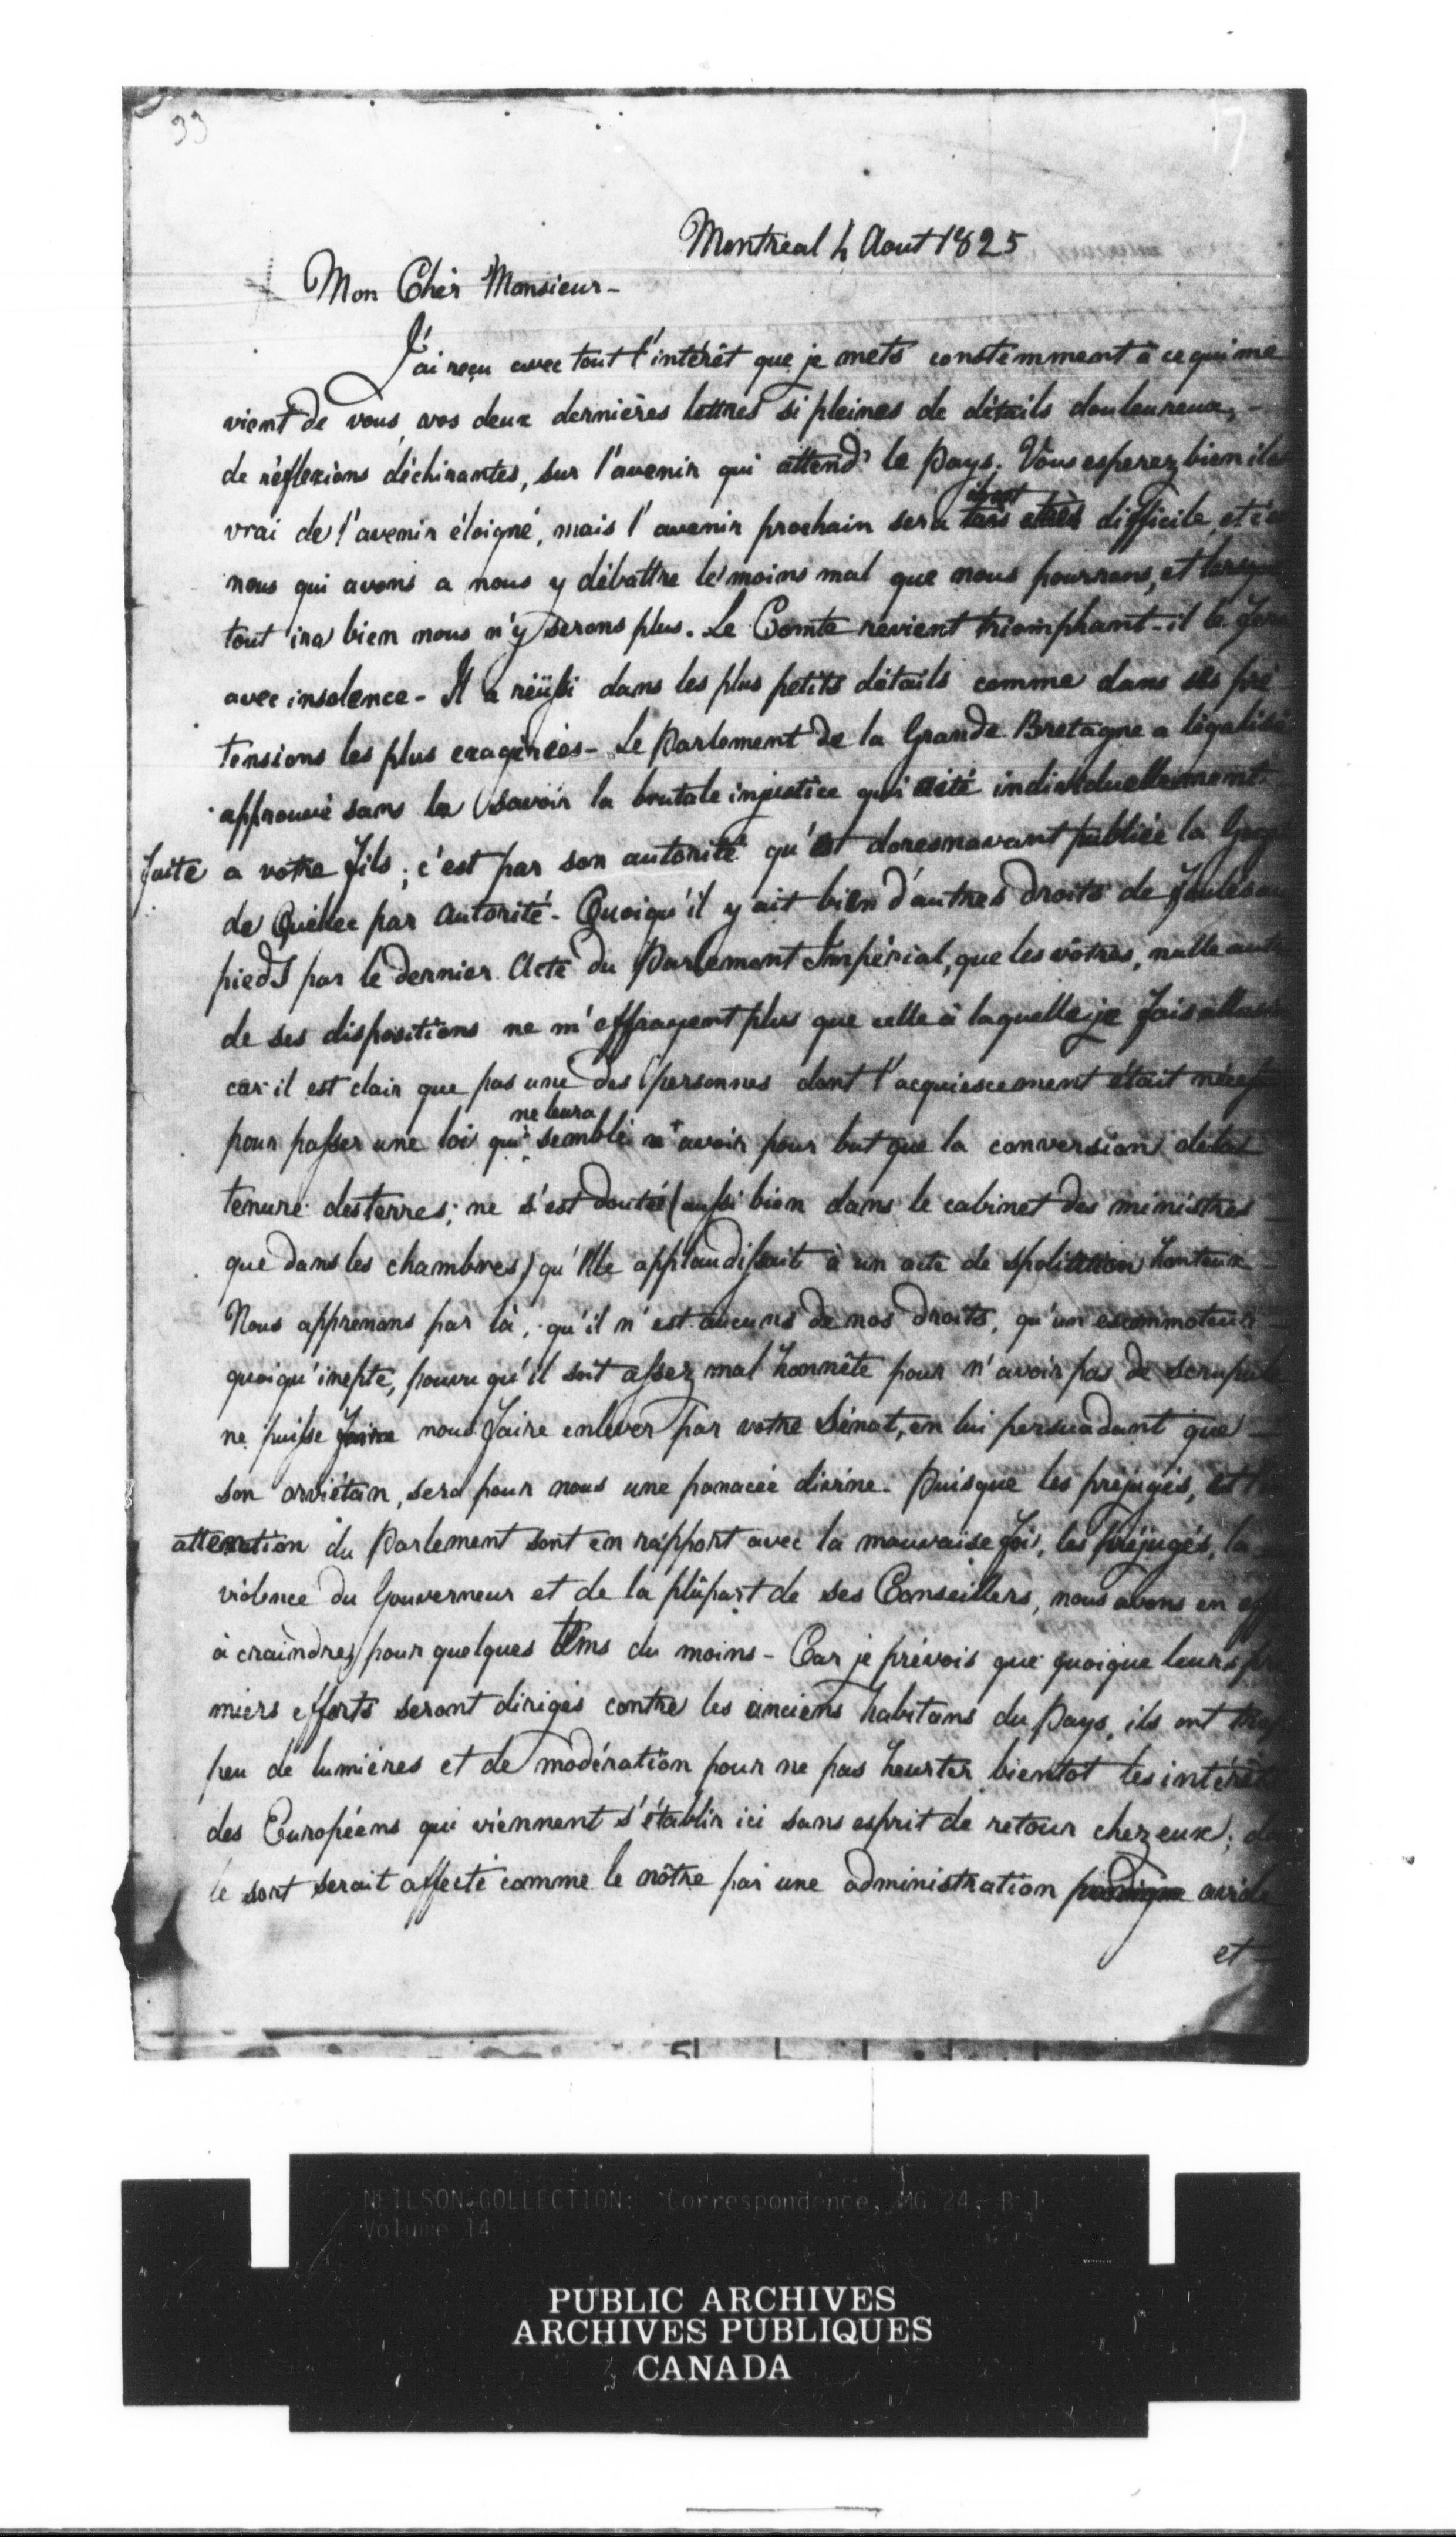 33
17
Montréal 4 Aout 1825
Mon Cher Monsieur -
J'ai reçu avec tout l'intérêt que je mets constemment à ce qui me
vient de vous, vos deux dernières lettres si pleines de détails douleureux, -
de réflexions déchirantes, sur l'avenir qui attend le pays. Vous esperez bien il
vrai de l'avenir éloigné, mais l'avenir prochain sera difficile, et
nous qui avons a nous y débattre le moins mal que nous pourrons, et
tout ira bien nous n'y serons plus. Le Comte revient triomphant - il le
avec insolence - Il a réüssi dans les plus petits détails comme dans ses pré
tensions les plus exagérées - Le Parlement de la Grande Bretagne a légalisé
approuvé sans le savoir la brutale injustice qui a été individuellement
faite a votre fils; c'est par son autorité qu'est doresnavant publiée la
de Québec par Autorité - Quoiqu'il y ait bien d'autres droits de foulés au
pieds par le dernier Acte du Parlement Impérial, que les vôtres, nulle
de ses dispositions ne m'effrayent plus que celle à laquelle je fais
car il est clair que pas une des personnes dont l'acquiescement était
ne leur a
pour passer une loi qui semblé avoir pour but que la conversion de la
tenure des terres; ne s'est doutée (aussi bien dans le cabinet des ministres
que dans les chambres) qu'elle applaudissait à un acte de spoliation honteux -
Nous apprenons par là, qu'il n'est aucuns de nos droits, qu'un escommoteur -
quoiqu'inepte, pouvu qu'il soit assez mal honnête pour n'avoir pas de scrupule
ne puisse faire nous faire enlever par votre Sénat, en lui persuadant que -
son orviétan, sera pour nous une panacée divine. Puisque les préjugés, et
attention du Parlement sont en rapport avec la mauvaise foi, les préjugés, la
violence du Gouverneur et de la plûpart de ses Conseillers, nous avons en
à craindre, pour quelques tems du moins - Car je prévois que quoique leurs
miers efforts seront dirigés contre les anciens habitans du Pays, ils ont
peu de lumières et de modération pour ne pas heurter bientot les intérêts
des Européens qui viennent s'établir ici sans esprit de retour chez eux;
le sort serait affecté comme le nôtre par une administration avide
et -
NEILSON COLLECTION: Correspondence, MG 24 - B 1
Volume 14
PUBLIC ARCHIVES
ARCHIVES PUBLIQUES
CANADA